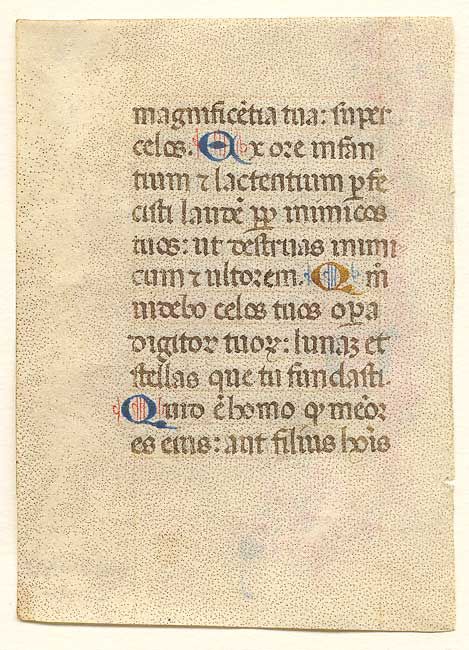 magnificētia tua: super
celos. Ex ore infan
tium ⁊ lactentium ꝑfe
cisti laudē ꝓp inimicos
tuos: ut destruas inimi
cum ⁊ ultorem. Qm̄
uidebo celos tuos oꝑa
digitoꝝ tuoꝝ: lunaꝫ et
stellas que tu fundasti.
Quid ē homo ꝙ memōr
es eius: aut filius hoīs